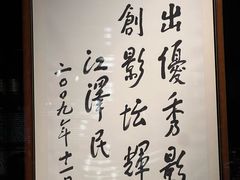 出優秀影
創影坛輝
江澤民
二〇〇九年十一